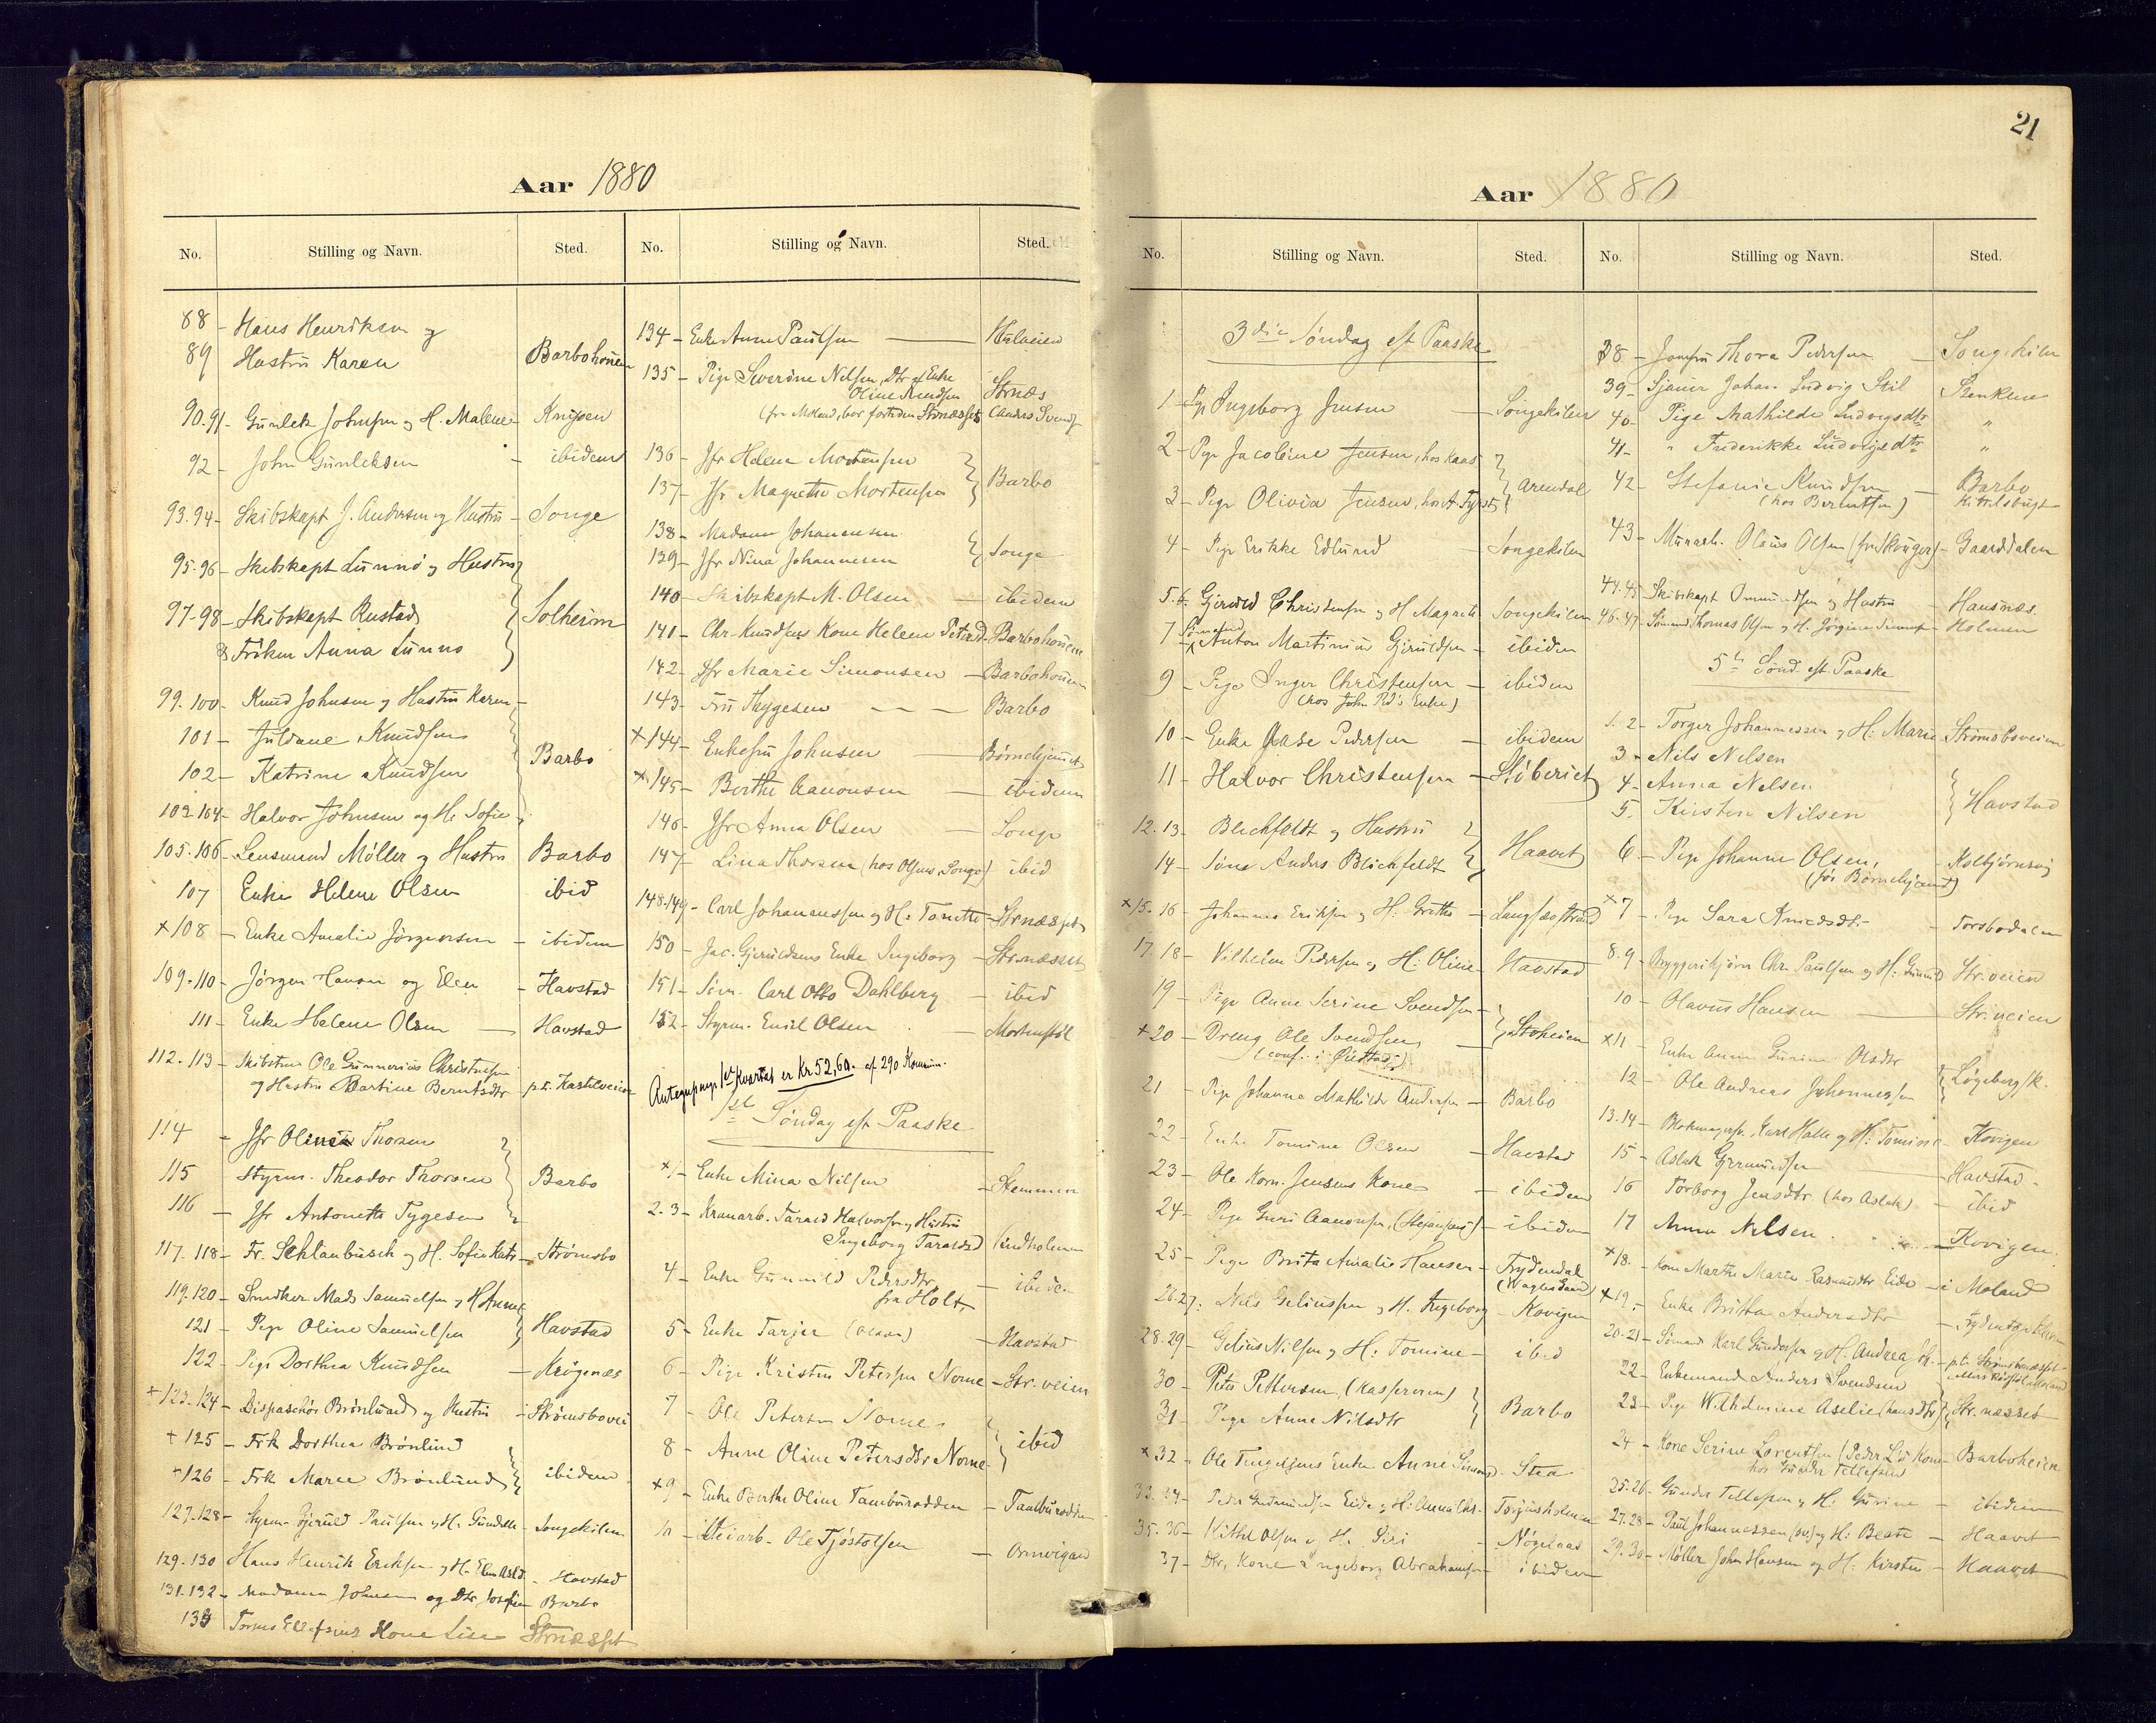 Aar 1880
No. Stilling og Navn. Sted.
88 - Hans Henriksen og
89 Hustru Karen Barbohouen
90.91 - Gunlek Johnsen og H. Malene - Knipen
92 - John Gunleksen - ibidem
93.94 - Skibskapt J. Andersen og Hustru - Songe
95.96 - Skibskapt Lunnø og Hustru
97-98 - Skibskapt Rustad Solheim
& Frøken Anna Lunnø
99.100 - Knud Johnsen og Hustru Karen -
101 - Juldane Knudsen
102 - Katrine Knudsen Barbo
103.104 - Halvor Johnsen og H. Sofie
105.106 - Lensmand Møller og Hustru Barbo
107 Enke Helene Olsen ibid
×108 - Enke Amalie Jørgensen - ibidem
109.110 - Jørgen Hansen og Elen - Havstad
111 - Enke Helene Olsen - Havstad
112.113 - Skibstm Ole Gunnerius Christensen
og Hustru Bartine Berntsdtr p.t. Kastelveien
114 - Jfr Oline Thorsen
115 - Styrm. Theodor Thorsen Barbo
116 - Jfr Antonette Tygesen
117.118 - Fr. Schlanbusch og H. Sofie - Strømsbo
119.120 - Snedker Mads Samuelsen og H Anne
121 - Pige Oline Samuelsen Havstad
122 - Pige Dorthea Knudsen - Krøgenæs
×123.124 - Dispaschør Brønlund og Hustru - Strømsbovei
×125 - Frk Dorthea Brønlund
×126 - Frk Maren Brønlund ibidem
127.128 - Styrm. Gjeruld Paulsen og H. Gundele - Songekilen
129.130 Hans Henrik Eriksen og H. Elen - Havstad
131.132 - Madame Johnsen og Dtr Josefine - Barbo
133 Kone Lise Strnæsset
No. Stilling og Navn. Sted.
134 - Enke Anne Paulsen
135 - Pige Severine Nilsen, Dtr af Enke
Oline Knudsen Strnæs
136 - Jfr Helene Mortensen
137 - Jfr Magrethe Mortensen Barbo
138 - Madame Johannesen
139 - Jfr Nina Johannesen Songe
140 - Skibskapt M. Olsen - ibidem
141 - Chr. Knudsens Kone Helene - Barbohouen
142 - Jfr Marie Simonsen - Barbohouen
143 - Fru Thygesen - - Barbo
×144 - Enkefru Johnsen - Børnehjemmet
×145 - Berthe Aanonsen - ibidem
146 - Jfr Anna Olsen - Songe
147 - Lina Thorsen (hos Olsens, Songe) ibid
148.149 - Carl Johannessen og H: Tonette - Strnæsset
150 - Jac. Gjeruldsens Enke Ingeborg - Strnæsset
151 - Søm. Carl Otto Dahlberg - ibid
152 - Styrm. Emil Olsen - Mortensstøl
Antegnpenge 1ste Kvartal er Kr 52,60. af 290 Kommun.
1ste Søndag eft Paaske
×1 - Enke Mina Nilsen - Stemmen
2.3 - Kranarb. Tarald Halvorsen og Hustru
Ingeborg Taraldsd Lindholmen
4 - Enke Gunnild Pedersdtr
fra Holt - ibidem
5 - Enke Tarjer - Havstad
6 - Pige Kristine Petersen Norne - Str.veien
7 - Ole Petersen Norne
8 - Anne Oline Petersdtr Norne ibid
×9 - Enke Berthe Oline Tamburodden - Tamburodden
10 - Veiarb. Ole Tjøstolsen -
21
Aar 1880
No. Stilling og Navn. Sted.
3die Søndag eft Paaske
1 - Pige Ingeborg Jensen - Songekilen
2 - Pige Jacobine Jensen, hos Kaas
3 - Pige Olivia Jensen, Arendal
4 - Pige Erikke Edlund - Songekilen
5.6. Gjeruld Christensen og H Magrete Songekilen
7 Sømand Anton Martinius Gjeruldsen - ibidem
9 - Pige Inger Christensen - ibidem
(hos John Ped's Enke)
10 - Enke Aase Pedersen - ibidem
11 - Halvor Christensen - Støberiet
12.13 - Blichfeldt og Hustru
14 - Søne Anders Blichfeldt Haavet
×15.16 - Johannes Eriksen og H: Grethe - Langsæstrand
17.18 - Vilhelm Pedersen og H: Oline - Havstad
19 - Pige Anne Serine Svendsen -
×20 - Dreng Ole Svendsen - Stoheien
21 - Pige Johanne Mathilde Andersen - Barbo
22 - Enke Tomine Olsen - Havstad
23 - Ole Korn. Jensens Kone - ibidem
24 - Pige Guri Aanonsen, - ibidem
25 - Pige Berta Amalie Hansen - Frydendal
26.27. Nils Geliussen og H. Ingeborg - Kovigen
28.29 - Gelius Nilsen og H: Tomine - ibid
30 - Peter Pettersen, (Kaspersen)
31 - Pige Anne Nilsdtr Barbo
×32 - Ole Enke Anne - Stea
33.34 - Peder Gudmundsen Eide og H: Anna - Torjusholmen
35.36 - Kittel Olsen og H. Siri -
37 - Kone Ingeborg Abrahamsen - ibidem
No. Stilling og Navn. Sted.
38 - Jomfru Thora Pedersen - Songekilen
39 - Sjauer Johan Ludvig Stil -
40 - Pige Mathilde Ludvigsdtr "
41 - " Frederikke Ludvigsdtr "
42 - Stefanie Knudsen - Barbo
(hos Berentsen) Kittelsbugt
43 - Murarb. Olaus Olsen - Gaarddalen
44.45 - Skibskapt Ommundsen og Hustru - Hansnæs.
46.47 - Sømand Thomas Olsen og H. Jørgine - Holmen
5te Sønd. eft Paaske
1.2 - Torger Johannessen og H: Marie - Strømsboveien
3 - Nils Nilsen
4 - Anna Nilsen
5. Kirsten Nilsen Havstad
6 - Pige Johanne Olsen, - Kolbjørnsvig
(før Børnehjemmet)
×7 - Pige Sara Knudsdtr - Torsbudalen
8.9 - Chr. Paulsen og H: Gunnild Str.veien
10 - Olavus Hansen - Str.veien
×11 - Enke Anne Gurine Olsdtr
12 - Ole Andreas Johannessen
13.14 - Karl Halle og H: Tomine - Kovigen
15 - Aslak Gjermundsen - Havstad -
16 Torborg Jensdtr (hos Aslak) - ibid
17 Anna Nilsen. - Kovigen.
×18. Kone Marthe Marie Rasmusdtr Eide - i Moland
×19. - Enke Britha Andersdtr -
20.21 - Sømand Karl Gundersen og H. Andrea
22 - Enkemand Anders Svendsen
23 - Pige Wilhelmine Str.næsset
24 - Kone Serine Lorentsen - Barboheien
hos Gunder Tellefsen
25.26 - Gunder Tellefsen og H: Gurine - ibidem
27.28 - Paul Johannessen og H: Beate - Haavet
29.30 - Møller John Hansen og H: Kirsten - Haavet